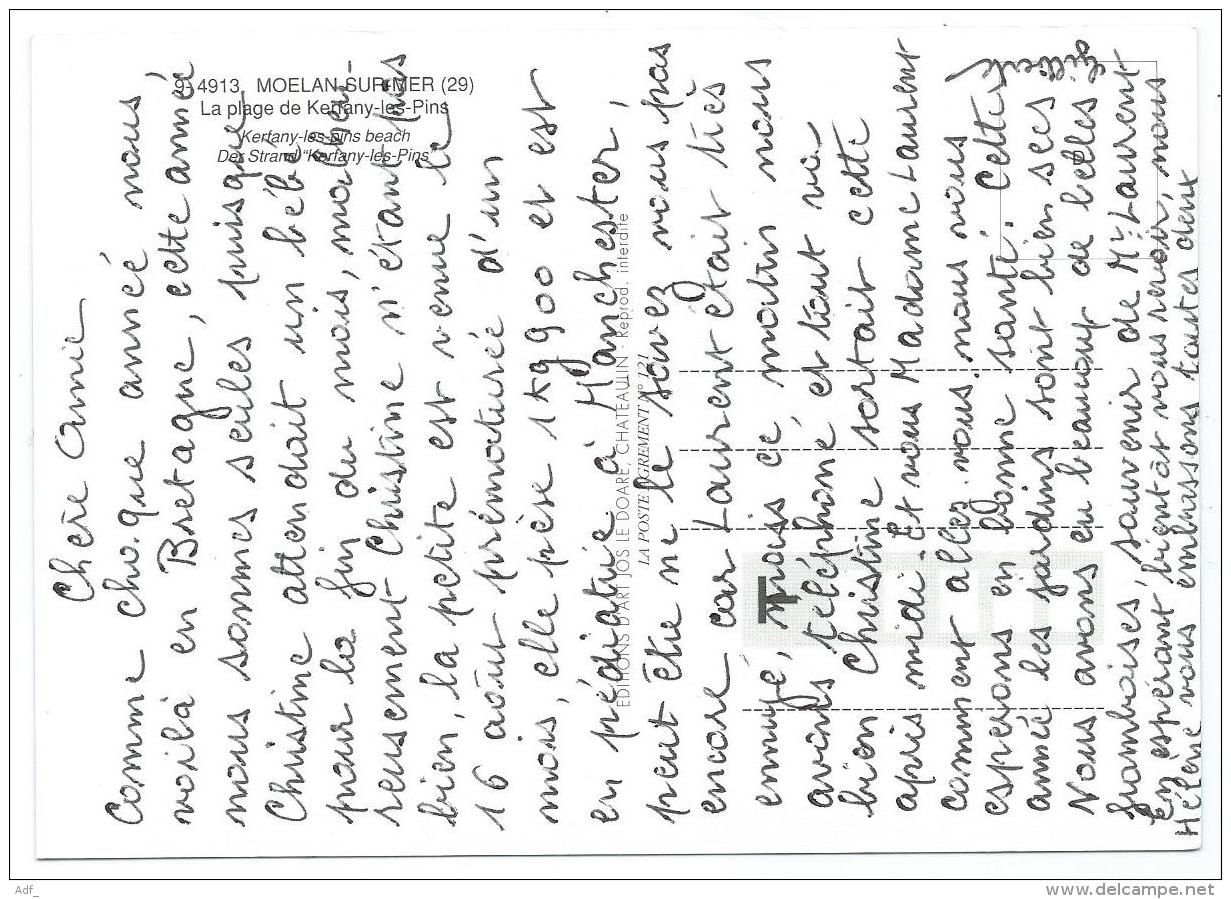 9- 4913. MOELAN-SUR-MER (29)
La plage de Kerfany-les-Pins
Kerfany-les-pins beach
Der Strand "Kerfany-les-Pins"
EDITIONS D'ART JOS LE DOARÉ, CHATEAULIN - Reprod. interdite
LA POSTE AGREMENT N° 121
Chère Amie
Comme chaque année nous
voilà en Bretagne, cette année
nous sommes seules puisque
Christine attendait un bébé
pour la fin du mois, malheu-
reusement Christine n'étant pas
bien, la petite est venue le
16 août prématurée d'un
mois, elle pèse 1kg900 et est
en pédiatrie à Manchester,
peut être ne le savez vous pas
encore car Laurent était très
ennuyé, mais ce matin nous
avons téléphoné, et tout va
bien Christine sortait cette
après midi. Et vous Madame Laurent
comment allez. vous. nous vous
esperons en bonne santé. Cette
année les jardins sont bien secs
Nous avons eu beaucoup de belles
framboises, souvenir de Mr Laurent
En espérant bientôt vous revoir, nous
Hélène vous embrassons toutes deux
Adf_
www.delcampe.net